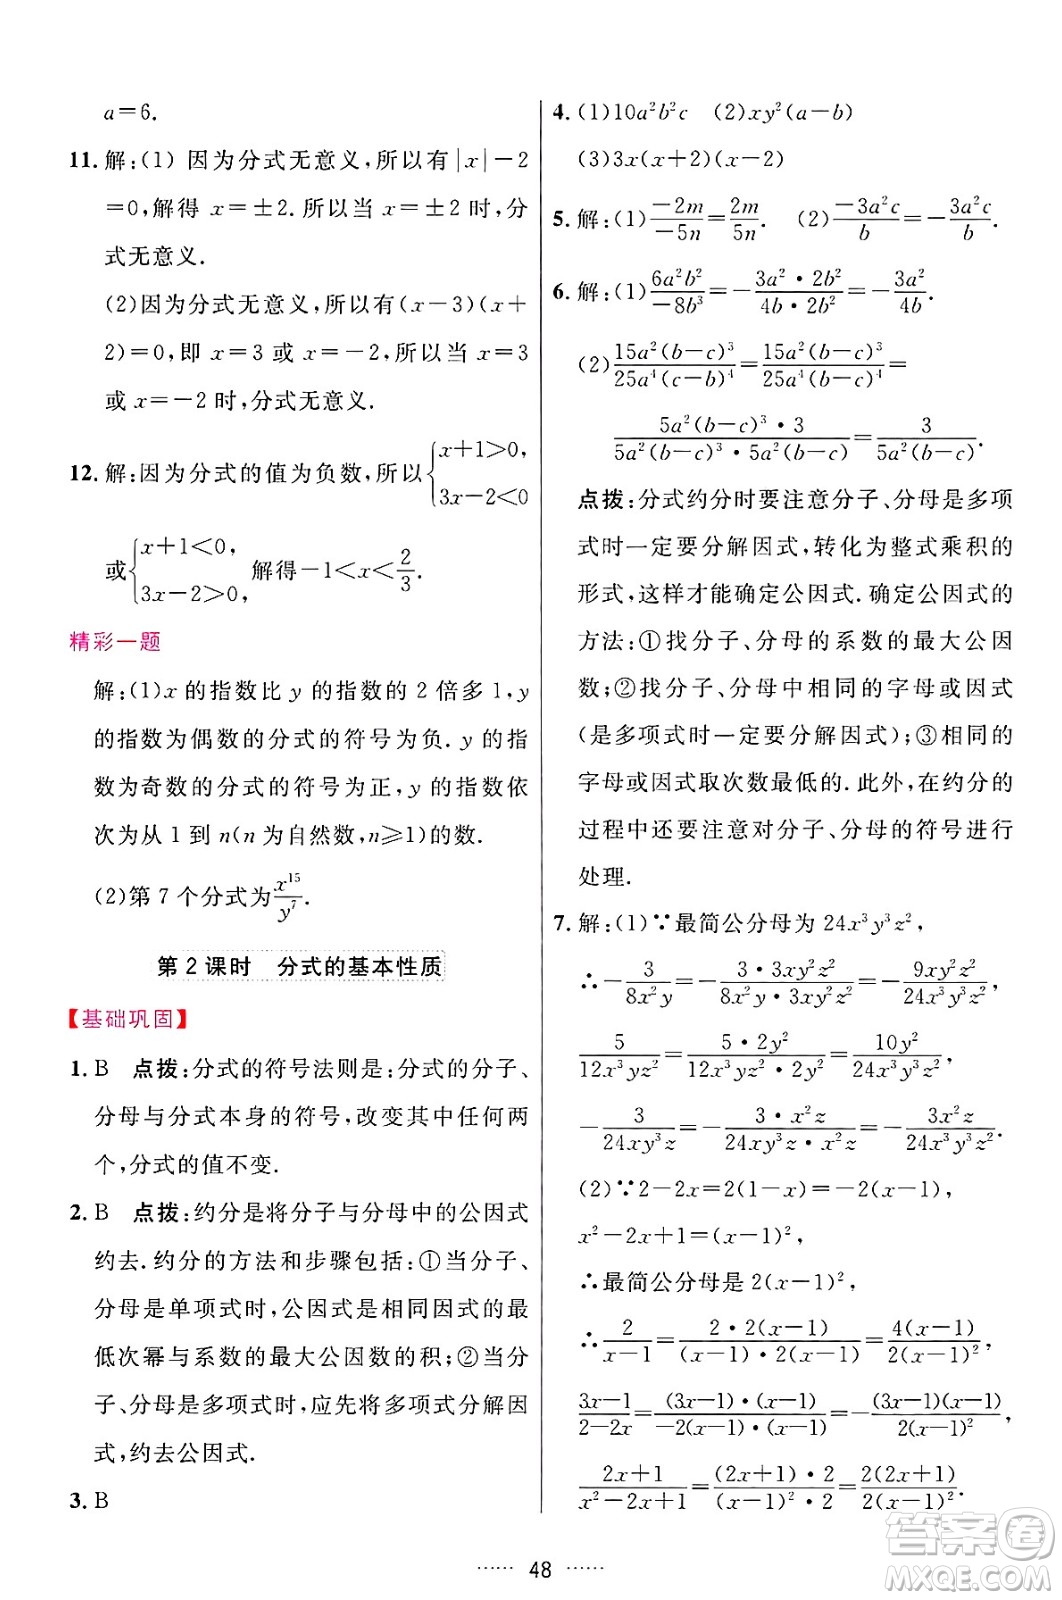 a=6.
11. 解:(1) 因为分式无意义,所以有|x|-2
=0,解得 x=±2.所以当 x=±2 时,分
式无意义.
(2)因为分式无意义,所以有(x-3)(x+
2)=0,即 x=3 或 x=-2,所以当 x=3
或 x=-2 时,分式无意义.
12. 解:因为分式的值为负数,所以{x+1>0, 3x-2<0
或{x+1<0, 3x-2>0, 解得-1<x<2/3.
精彩一题
解:(1)x 的指数比 y 的指数的 2 倍多 1,y
的指数为偶数的分式的符号为负.y 的指
数为奇数的分式的符号为正,y 的指数依
次为从 1 到 n(n 为自然数,n≥1)的数.
(2)第 7 个分式为x¹⁵/y⁷.
第 2 课时 分式的基本性质
【基础巩固】
1. B 点拨:分式的符号法则是:分式的分子、
分母与分式本身的符号,改变其中任何两
个,分式的值不变.
2. B 点拨:约分是将分子与分母中的公因式
约去.约分的方法和步骤包括:①当分子、
分母是单项式时,公因式是相同因式的最
低次幂与系数的最大公因数的积;②当分
子、分母是多项式时,应先将多项式分解因
式,约去公因式.
3. B
4. (1)10a²b²c (2)xy²(a-b)
(3)3x(x+2)(x-2)
5. 解:(1)-2m/-5n=2m/5n. (2)-3a²c/b=-3a²c/b.
6. 解:(1)6a²b²/-8b³=-3a²·2b²/4b·2b²=-3a²/4b.
(2)15a²(b-c)³/25a⁴(c-b)⁴=15a²(b-c)³/25a⁴(b-c)⁴=
5a²(b-c)³·3/5a²(b-c)³·5a²(b-c)=3/5a²(b-c).
点拨:分式约分时要注意分子、分母是多项
式时一定要分解因式,转化为整式乘积的
形式,这样才能确定公因式.确定公因式的
方法:①找分子、分母的系数的最大公因
数;②找分子、分母中相同的字母或因式
(是多项式时一定要分解因式);③相同的
字母或因式取次数最低的.此外,在约分的
过程中还要注意对分子、分母的符号进行
处理.
7. 解:(1)∵最简公分母为 24x³y³z²,
∴-3/8x²y=-3·3xy²z²/8x²y·3xy²z²=-9xy²z²/24x³y³z²,
5/12x³yz²=5·2y²/12x³yz²·2y²=10y²/24x³y³z²,
-3/24xy³z=-3·x²z/24xy³z·x²z=-3x²z/24x³y³z².
(2)∵2-2x=2(1-x)=-2(x-1),
x²-2x+1=(x-1)²,
∴最简公分母是 2(x-1)²,
∴2/x-1=2·2(x-1)/(x-1)·2(x-1)=4(x-1)/2(x-1)²,
3x-1/2-2x=(3x-1)·(x-1)/-2(x-1)·(x-1)=-(3x-1)(x-1)/2(x-1)²,
2x+1/x²-2x+1=(2x+1)·2/(x-1)²·2=2(2x+1)/2(x-1)².
48
答案圈
MXQE.COM